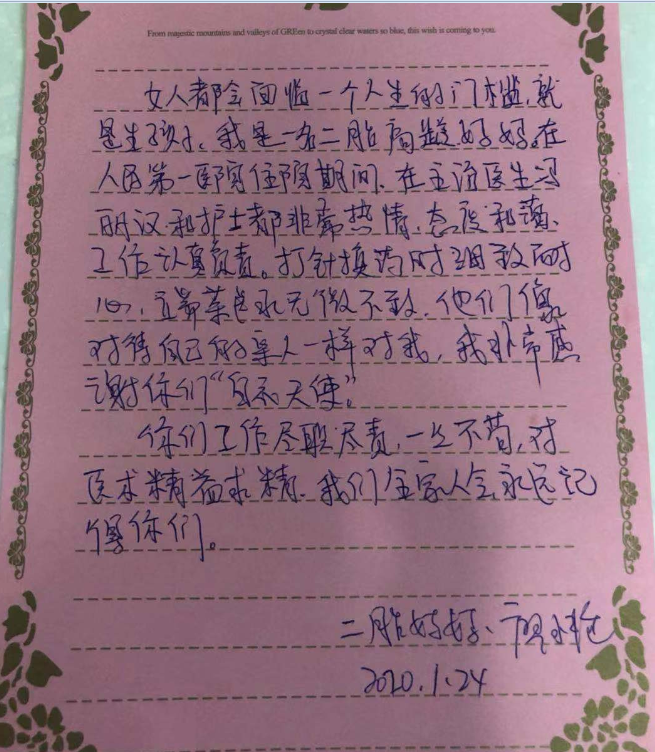 From majestic mountains and valleys of GREen to crystal clear waters so blue, this wish is coming to you.
女人都会面临一个人生的门槛,就
是生孩子、我是一名二胎高龄妈妈.在
人民第一医院住院期间、在主治医生冯
丽汉和护士都非常热情、态度和蔼、
工作认真负责。打针换药时细致耐
心、无微不致.他们像
对待自己的亲人一样对我,我非常感
谢你们“白衣天使”。
你们工作尽职尽责,一丝不苟,对
医术精益求精.我们全家人会永远记
得你们。
二胎妈妈、
2020.1.24